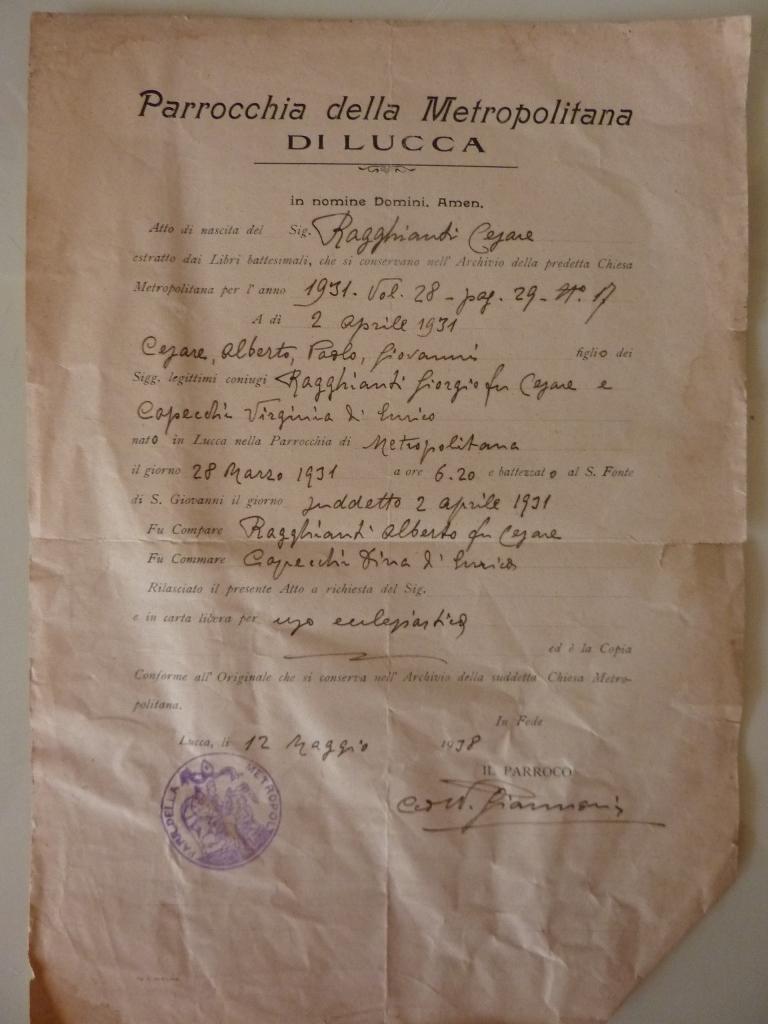 Parrocchia della Metropolitana
DI LUCCA
in nomine Domini. Amen.
Atto di nascita del Sig. Ragghianti Cesare
estratto dai Libri battesimali, che si conservano nell' Archivio della predetta Chiesa
Metropolitana per l' anno 1931. Vol. 28 - pag. 29 - N° 17
A dì 2 aprile 1931
Cesare, Alberto, Paolo, Giovanni figlio dei
Sigg. legittimi coniugi Ragghianti Giorgio fu Cesare e
Capecchi Virginia di Enrico
nato in Lucca nella Parrocchia di Metropolitana
il giorno 28 Marzo 1931 a ore 6.20 e battezzato al S. Fonte
di S. Giovanni il giorno suddetto 2 aprile 1931
Fu Compare Ragghianti Alberto fu Cesare
Fu Commare Capecchi Dina di Enrico
Rilasciato il presente Atto a richiesta del Sig.
e in carta libera per uso ecclesiastico
ed è la Copia
Conforme all' Originale che si conserva nell' Archivio della suddetta Chiesa Metro-
politana.
In Fede
Lucca, li 12 Maggio 1938
IL PARROCO
Giannoni
PARR. DELLA METROPOLI